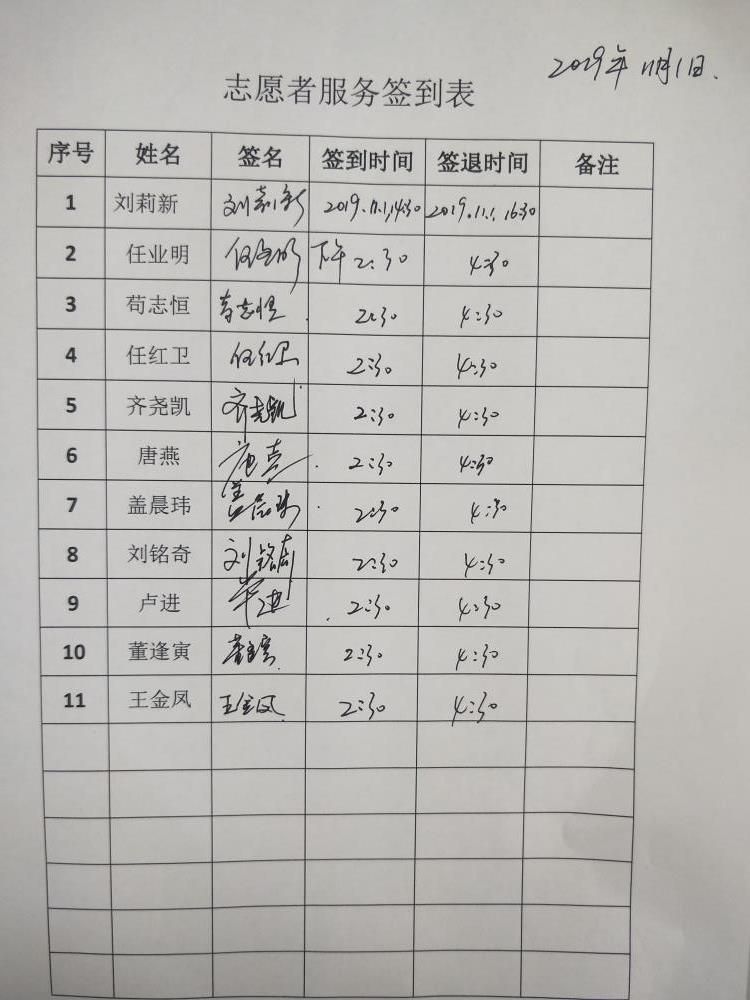 2019年11月1日.
志愿者服务签到表
序号 姓名 签名 签到时间 签退时间 备注
1 刘莉新 刘莉新 2019.11.1,14:30 2019.11.1, 16:30
2 任业明 任业明 下午 2:30 4:30
3 苟志恒 苟志恒 2:30 4:30
4 任红卫 任红卫 2:30 4:30
5 齐尧凯 齐尧凯 2:30 4:30
6 唐燕 唐燕 2:30 4:30
7 盖晨玮 盖晨玮 2:30 4:30
8 刘铭奇 刘铭奇 2:30 4:30
9 卢进 卢进 2:30 4:30
10 董逢寅 董逢寅 2:30 4:30
11 王金凤 王金凤 2:30 4:30